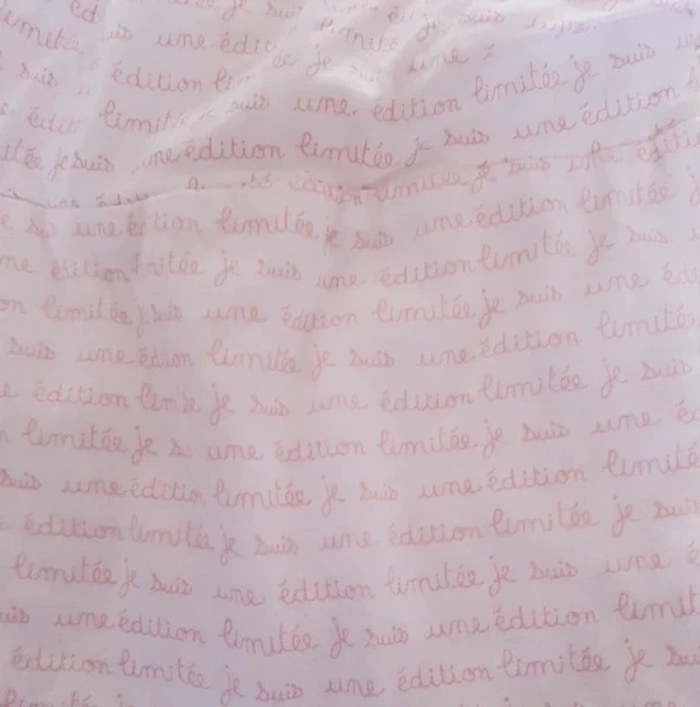 je suis
limitée suis une édit limité je suis
suis édition je une
édit limitée suis une édition limitée je suis
itée je suis une édition limitée je suis une édition
limitée je suis une édition
e une édition limitée je suis une édition limitée
ne édition limitée je suis une édition limitée je suis
on limitée suis une édition limitée je suis une édi
suis une édition limitée je suis une édition limitée
e édition limitée je suis une édition limitée je suis
n limitée je s une édition limitée je suis une é
suis une édition limitée je suis une édition limité
édition limitée je suis une édition limitée je suis
limitée je suis une édition limitée je suis une é
uis une édition limitée je suis une édition limit
édition limitée je suis une édition limitée je sui